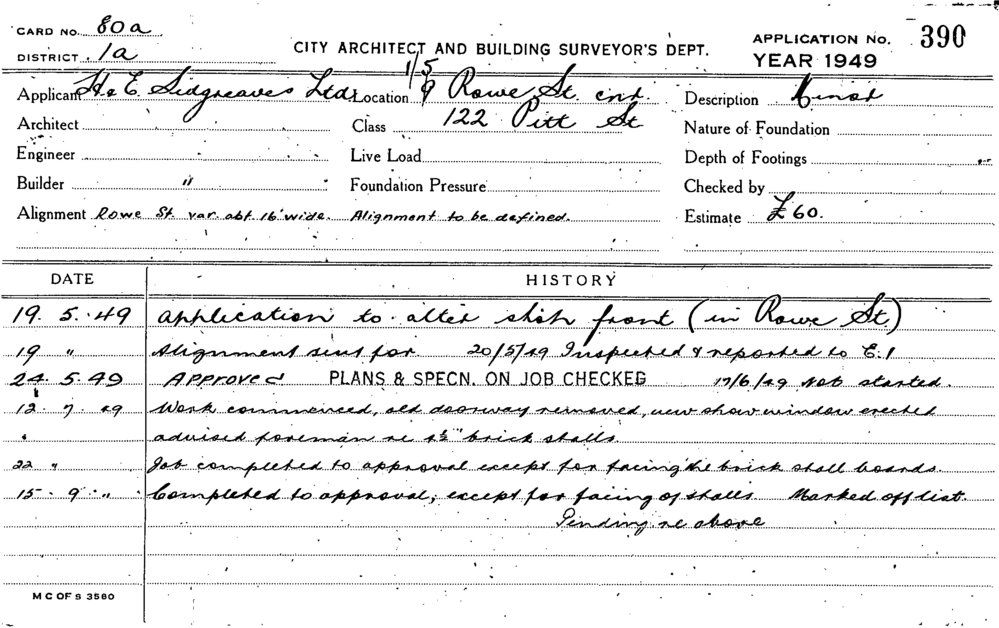 CARD NO. 80a
DISTRICT 1a
CITY ARCHITECT AND BUILDING SURVEYOR'S DEPT.
APPLICATION NO. 390
YEAR 1949
Applicant H & E. Sidgreaves Ltd. Location 1/5 9 Rowe St. cnr. Description Minor
Architect Class 122 Pitt St Nature of Foundation
Engineer Live Load Depth of Footings
Builder " Foundation Pressure Checked by
Alignment Rowe St. var. abt. 16' wide. Alignment to be defined. Estimate £60.
DATE HISTORY
19. 5. 49 Application to alter shop front (in Rowe St.)
19 " Alignment sent for 20/5/49 Inspected & reported to E.1
24. 5. 49 Approved PLANS & SPECN. ON JOB CHECKED 17/6/49 Not started.
12. 7. 49 Work commenced, old doorway removed, new show window erected
advised foreman re 4½" brick stalls.
22 " Job completed to approval except for facing the brick stall boards.
15. 9. " Completed to approval, except for facing of stalls Marked off list.
Pending re above
M C OF S 3580